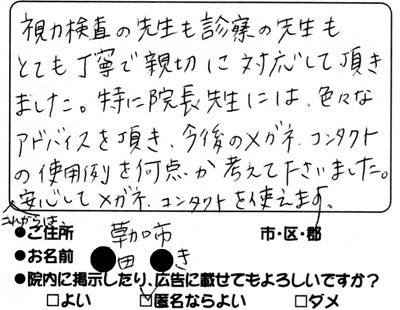 視力検査の先生も診察の先生も
とても丁寧で親切に対応して頂き
ました。特に院長先生には、色々な
アドバイスを頂き、今後のメガネ、コンタクト
の使用例を何点か考えて下さいました。
これからは、安心してメガネ、コンタクトを使えます。
●ご住所 草加市 市・区・郡
●お名前 ●田●き
●院内に掲示したり、広告に載せてもよろしいですか?
□よい ☑匿名ならよい □ダメ